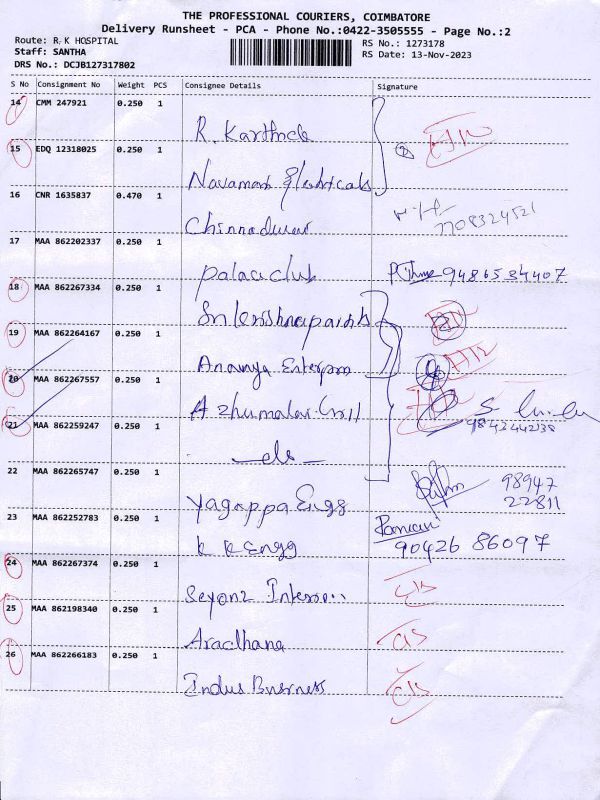 THE PROFESSIONAL COURIERS, COIMBATORE
Delivery Runsheet - PCA - Phone No.:0422-3505555 - Page No.:2
Route: R K HOSPITAL
Staff: SANTHA
DRS No.: DCJB127317802
RS No.: 1273178
RS Date: 13-Nov-2023
S No Consignment No Weight PCS Consignee Details Signature
14 CMM 247921 0.250 1
R. Karthick
15 EDQ 12318025 0.250 1
Navamani Electricals
16 CNR 1635837 0.470 1
Chinnadurai
7708324521
17 MAA 862202337 0.250 1
palace club 9486534407
18 MAA 862267334 0.250 1
Sri krishna paints
19 MAA 862264167 0.250 1
Ananya Enterprs
20 MAA 862267557 0.250 1
Azhumalai (m)
21 MAA 862259247 0.250 1
do
22 MAA 862265747 0.250 1
98947
22811
yagappa Engg
23 MAA 862252783 0.250 1
k k Engg
90426 86097
24 MAA 862267374 0.250 1
25 MAA 862198340 0.250 1
Aradhana
26 MAA 862266183 0.250 1
Indus Business